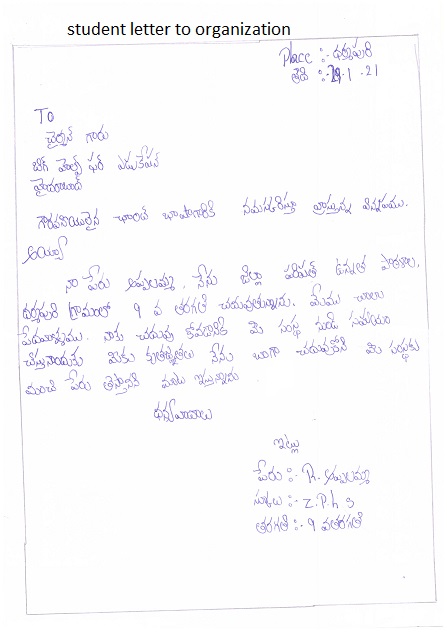 student letter to organization
Place :- ధర్మపురి
తేది :- 29.1.21
To
చైర్మన్ గారు
బిగ్ హెల్ప్ ఫర్ ఎడుకేషన్
హైదరాబాద్
గౌరవనీయులైన చాంద్ భాషాగారికి నమస్కరిస్తూ వ్రాస్తున్న విన్నపము.
అయ్యా
నా పేరు అప్పలమ్మ, నేను జిల్లా పరిషత్ ఉన్నత పాఠశాల,
ధర్మపురి గ్రామంలో 9 వ తరగతి చదువుతున్నాను. మేము చాలా
పేదవాళ్ళము. నాకు చదువు కోవడానికి మీ సంస్థ నుండి సహాయం
చేస్తునందుకు మీకు కృతజ్ఞతలు నేను బాగా చదువుకొని మీ సంస్థకు
మంచి పేరు తెస్తానని మాట ఇస్తున్నాను
ధన్యవాదాలు
ఇట్లు
పేరు :- R. అప్పలమ్మ
స్కూలు :- Z.P.h s
తరగతి :- 9 వతరగతి